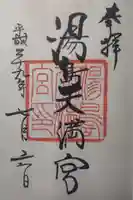 奉拝
湯島天満宮
平成二十九年十一月六日